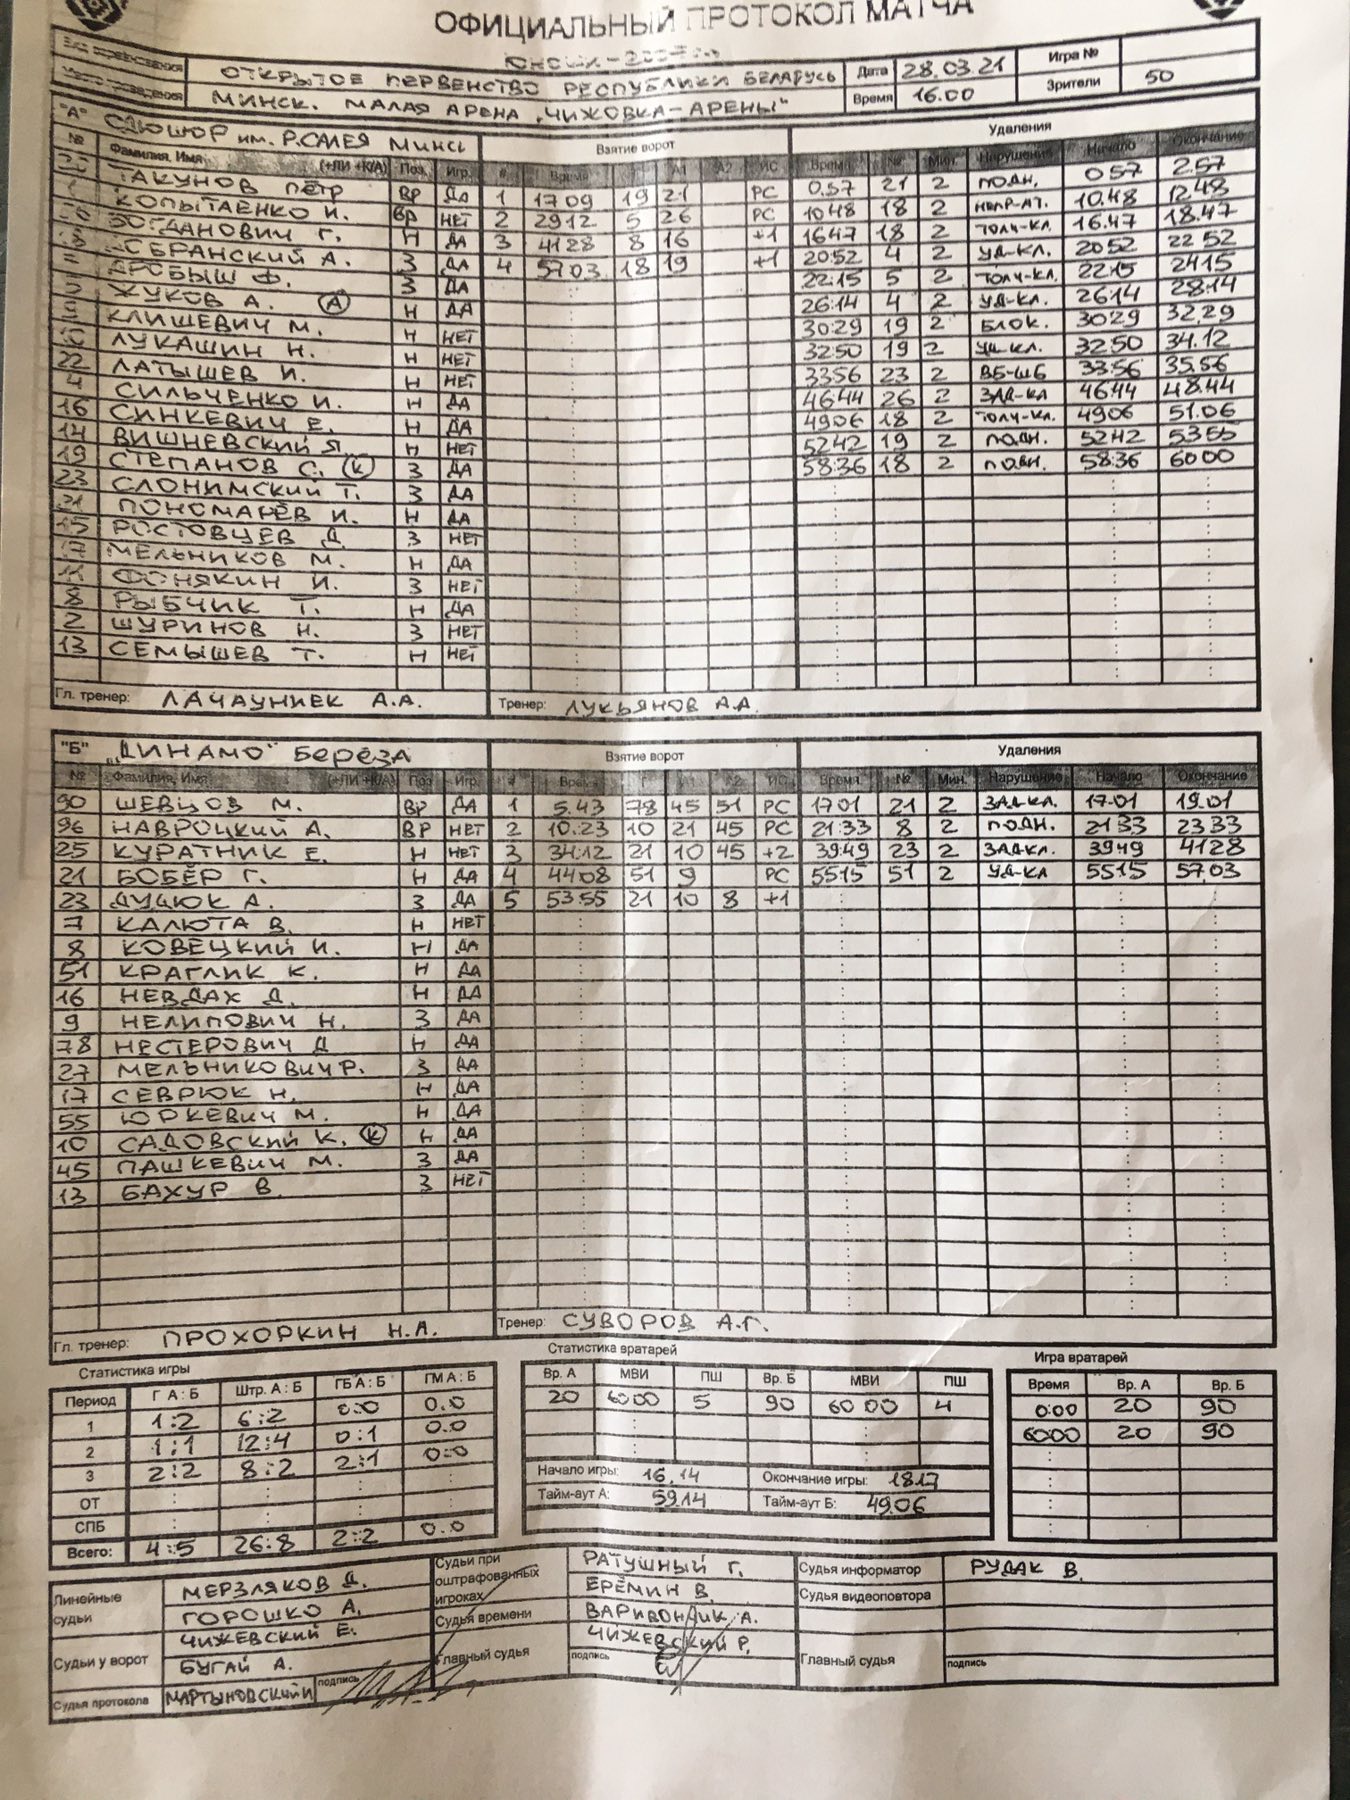 ОФИЦИАЛЬНЫЙ ПРОТОКОЛ МАТЧА
ЮНОШИ -
ОТКРЫТОЕ ПЕРВЕНСТВО РЕСПУБЛИКИ БЕЛАРУСЬ Дата 28.03.21 Игра №
МИНСК. МАЛАЯ АРЕНА „ЧИЖОВКА-АРЕНЫ" Время 16.00 Зрители 50
"А" СДЮШОР им. Р.САЛЕЯ МИНСК Взятие ворот Удаления
№ Фамилия, Имя (+ЛИ +К/А) Поз. Игр. # Время А1 А2 ИС Время № Мин. Нарушения Начало Окончание
ТАКУНОВ ПЁТР ВР ДА 1 17 09 19 21 РС 0.57 21 2 ПОДН. 0 57 2.57
КОПЫТАЕНКО И. ВР НЕТ 2 29 12 5 26 РС 10 48 18 2 НАПР-АТ. 10.48 12.48
БОГДАНОВИЧ Г. Н ДА 3 41 28 8 16 +1 16 47 18 2 ТОЛЧ-КЛ. 16.47 18.47
СБРАНСКИЙ А. З ДА 4 57 03 18 19 +1 20:52 4 2 УД-КЛ. 20 52 22 52
ДРОБЫШ Ф. З ДА 22:15 5 2 ТОЛЧ-КЛ. 22 15 24 15
ЖУКОВ А. (А) Н ДА 26:14 4 2 УД-КЛ. 26 14 28:14
КЛИШЕВИЧ М. Н НЕТ 30:29 19 2 БЛОК. 30 29 32.29
ЛУКАШИН Н. Н НЕТ 32 50 19 2 УД-КЛ. 32 50 34.12
22 ЛАТЫШЕВ И. Н НЕТ 33 56 23 2 ВБ-ШБ 33 56 35.56
4 СИЛЬЧЕНКО И. Н ДА 46 44 26 2 ЗАД-КЛ 46 44 48.44
16 СИНКЕВИЧ Е. Н ДА 49 06 18 2 ТОЛЧ-КЛ. 49 06 51.06
14 ВИШНЕВСКИЙ Я. Н НЕТ 52 42 19 2 ПОДН. 52 42 53 55
19 СТЕПАНОВ С. (К) З ДА 58:36 18 2 ПОДН. 58:36 60 00
23 СЛОНИМСКИЙ Т. З ДА
21 ПОНОМАРЁВ И. Н ДА
15 РОСТОВЦЕВ Д. З НЕТ
17 МЕЛЬНИКОВ М. Н ДА
11 ФОНЯКИН И. З НЕТ
8 РЫБЧИК Т. Н ДА
2 ШУРИНОВ Н. З НЕТ
13 СЕМЫШЕВ Т. Н НЕТ
Гл. тренер: ЛАЧАУНИЕК А.А. Тренер: ЛУКЬЯНОВ А.А.
"Б" „ДИНАМО" Берёза Взятие ворот Удаления
№ Фамилия, Имя (+ЛИ +К/А) Поз Игр. # Время Г А1 А2 ИС Время № Мин. Нарушение Начало Окончание
90 ШЕВЦОВ М. ВР ДА 1 5.43 78 45 51 РС 17 01 21 2 ЗАД-КЛ. 17.01 19.01
96 НАВРОЦКИЙ А. ВР НЕТ 2 10:23 10 21 45 РС 21:33 8 2 ПОДН. 21 33 23 33
25 КУРАТНИК Е. Н НЕТ 3 34:12 21 10 45 +2 39:49 23 2 ЗАД КЛ. 39 49 41 28
21 БОБЁР Г. Н ДА 4 44 08 51 9 РС 55 15 51 2 УД-КЛ 55 15 57,03
23 ДУЦЮК А. З ДА 5 53:55 21 10 8 +1
7 КАЛЮТА В. Н НЕТ
8 КОВЕЦКИЙ И. Н ДА
51 КРАГЛИК К. Н ДА
16 НЕВДАХ Д. Н ДА
9 НЕЛИПОВИЧ Н. З ДА
78 НЕСТЕРОВИЧ Д Н ДА
27 МЕЛЬНИКОВИЧ Р. З ДА
17 СЕВРЮК Н. Н ДА
55 ЮРКЕВИЧ М. Н ДА
10 САДОВСКИЙ К. (К) Н ДА
45 ПАШКЕВИЧ М. З ДА
13 БАХУР В. З НЕТ
Гл. тренер: ПРОХОРКИН Н.А. Тренер: СУВОРОВ А.Г.
Статистика игры Статистика вратарей Игра вратарей
Период Г А : Б Штр. А : Б ГБ А : Б ГМ А : Б Вр. А МВИ ПШ Вр. Б МВИ ПШ Время Вр. А Вр. Б
1 1:2 6:2 0:0 0.0 20 60 00 5 90 60 00 4 0:00 20 90
2 1:1 12:4 0:1 0.0 60:00 20 90
3 2:2 8:2 2:1 0:0 Начало игры: 16,14 Окончание игры: 18.17
ОТ Тайм-аут А: 59.14 Тайм-аут Б: 49.06
СПБ
Всего: 4:5 26:8 2:2 0.0
Линейные судьи МЕРЗЛЯКОВ Д. ГОРОШКО А. Судьи при оштрафованных игроках РАТУШНЫЙ Г. ЕРЁМИН В. Судья информатор РУДАК В.
Судья времени ВАРИВОНЧИК А. Судья видеоповтора
Судьи у ворот ЧИЖЕВСКИЙ Е. БУГАЙ А. Главный судья ЧИЖЕВСКИЙ Р. подпись Главный судья подпись
Судья протокола МАРТЫНОВСКИЙ И подпись